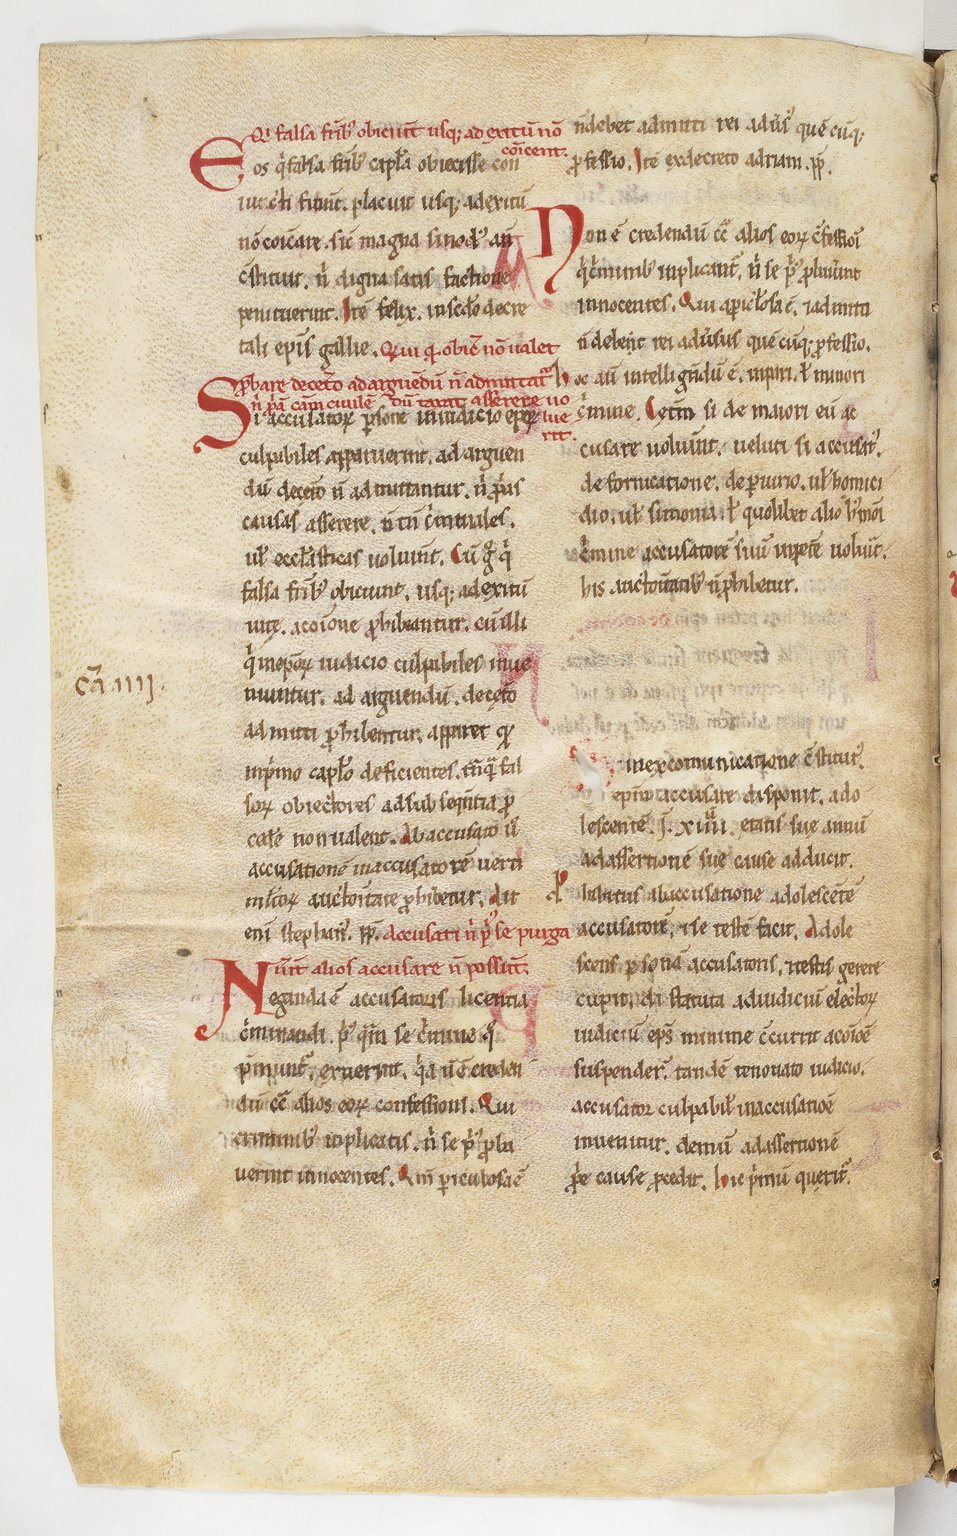 Qi falsa fr̄ibꝰ obiciūt usq; ad exitū nō
cōicent.
Eos q̇ falsa fr̄ibꝰ capl̄a obiecisse con
uicti fūint. placuit usq; ad exitū
nō cōicare. sic̄ magna sinodꝰ an̄
c̄stituit. n̄ digna satis factione
penituerint. Itē felix. in sc̄do decre
tali epis̄ gallie. Qui qd̓ obic̄ nō ualet
ꝓbare deceto ad arguēdū n̄ admittat̄
n̄ ꝓ̄a cām ciuilē dū taxat asserere uo
lue
rit.
Si accusatorꝝ ꝑsone in iudicio epoꝝ
culpibiles apparuerint. ad arguen
dū deceto n̄ admittantur. n̄ ꝓ̄as
causas asserere. n̄ tn̄ c̓minales.
ul̄ eccl̄asticas uoluīnt. Cū g̊ q̇
falsa fr̄ibꝰ obiciunt. usq; ad exitū
uitę. a cōione ꝓhibeantur. cū illi
q̇ in epoꝝ iudicio culpibiles inue
niuntur. ad arguendū. deceto
admitti ꝓhibentur. apparet qd̓
in p̓mo capl̄o deficientes. tāq̄ fal
soꝝ obiectores ad subseq̄ntia ꝓ
cede̅ non ualent. Ab accusato ū
accusationē in accusatorē uerti
ml̄toꝝ auctoritate ꝓhibetur. Ait
eni̅ stephanꝰ. ꝑꝑ. Accusati n̄ pꝰ se purga
uūt alios accusare n̄ possūt.
Neganda ē accusatoris licentia
c̓minandi. pꝰ q̄m se c̓mine qͦ
p̄munt̄. exuerint. q̇a n̄ ē creden
dū cc̄ alios eoꝝ confessioni. Qui
criminibꝰ inplicatis. n̄ se pꝰ ꝓba
uerint innocentes. Qm̄ ꝑiculosa ē
n̄ debet admitti rei adūsꝰ quē cūq;
ꝓfessio. Itē ex decreto adriani. ꝑꝑ.
Non ē credendū cc̄ alios eoꝝ c̄fessioī
q̇ c̓minibꝰ inplicant̄. n̄ se pꝰ ꝓbauīnt
innocentes. Qui a ꝑic̄losa ē. ⁊ admitti
n̄ debent rei adūsus quē cūq; ꝓfessio.
hoc aū intelligndū ē. in pari. ul̄ minori
c̓mine. Ceterū si de maiori eū ac
cusare uoluīnt. ueluti si accusatꝰ.
de fornicatione. de ꝑiurio. ul̄ homici
dio. ul̄ simonia. ul̄ quolibet alio hꝰmōi
c̓mine accusatorē suū inpete̅ uoluīt.
his auctoritatibꝰ n̄ ꝓhibetur.
cā iiij.
in excomunicatione c̄stitutꝰ.
epm̄ accusare disponit. ado
lescente̅ .i. xiiii. etatis sue annū
ad assertionē suę cause adducit.
ꝓhibitus ab accusatione adolescētē
accusatorē. ⁊ se testē facit. Adole
scens ꝑsonā accusatoris. ⁊ testis gerere
cupit. di statuta ad iudiciū electoꝝ
iudiciū epꝰ minime c̄currit a cōiōe
suspendet̄. tandē renouato iudicio.
accusator culpabil̄ in accusatiōe
inuenitur. demū ad assertionē
ꝓ̄e cause ꝓcedit. hic p̓mū querit̄.